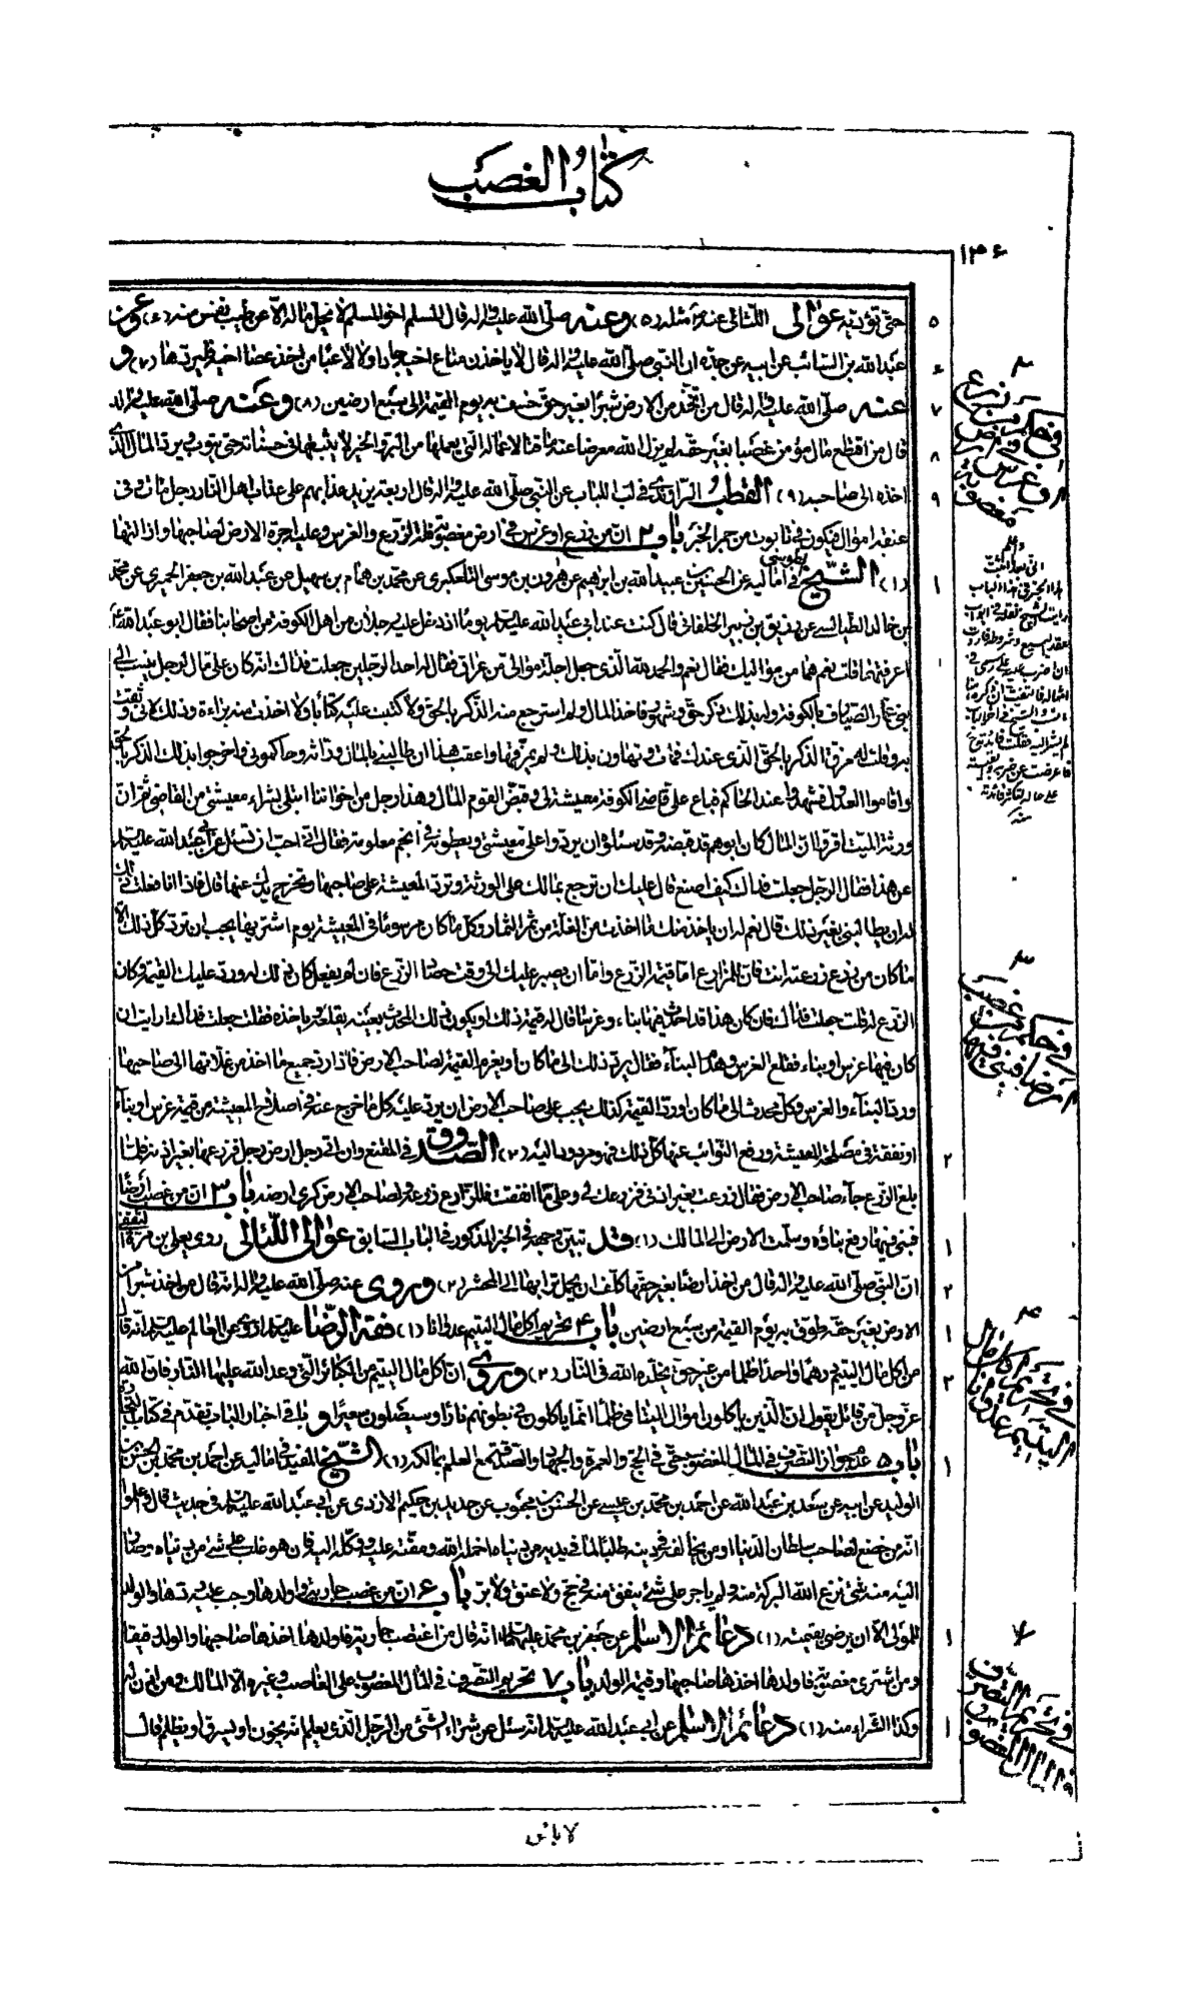 كتاب الغصب
١٤٦
حتى تؤديه عوالي اللئالي عنه مثله (٥) وعنه صلى الله عليه واله قال المسلم اخو المسلم لا يحل ماله الا عن طيب نفس منه (٦) وعن
عبد الله بن السائب عن ابيه عن جده ان النبي صلى الله عليه واله قال لا ياخذن متاع اخيه جادا ولا لاعبا من اخذ عصا اخيه فليردها (٧) و
عنه صلى الله عليه واله قال من اخذ من الارض شبرا بغير حق خسف به يوم القيمة الى سبع ارضين (٨) وعنه صلى الله عليه واله
قال من اقتطع مال مؤمن غصبا بغير حقه لم يزل الله معرضا عنه ماقتا لاعماله التي يعملها من البر والخير لا يثبتها في حسناته حتى يتوب ويرد المال الذي
اخذه الى صاحبه (٩) القطب الراوندي في لب اللباب عن النبي صلى الله عليه واله قال اربعة يزيد عذابهم على عذاب اهل النار رجل مات وفي
عنقه اموال فيكون في تابوت من جمر الخبر باب ٢ ان من زرع او غرس في ارض مغصوبة فله الزرع والغرس وعليه اجرة الارض لصاحبها وازالتهما
(١) الشيخ الطوسي في اماليه عن الحسين بن عبيد الله بن ابراهيم عن هرون بن موسى التلعكبري عن محمد بن همام بن سهيل عن عبد الله بن جعفر الحميري عن محمد
بن خالد الطيالسي عن رزيق بن زبير الخلقاني قال كنت عند ابي عبد الله عليه السلم يوما اذ دخل عليه رجلان من اهل الكوفة من اصحابنا فقال ابو عبد الله
اتعرفهما قلت نعم هما من مواليك فقال نعم والحمد لله الذي جعل اجلة موالي من عراق فقال له احد الرجلين جعلت فداك انه كان علي مال لرجل ينسب الى
بني عمار الصيارف بالكوفة وله بذلك ذكر حق وشهود فاخذ المال ولم استرجع منه الذكر بالحق ولا كتبت عليه كتابا ولا اخذت منه براءة وذلك لاني وثقت
به وقلت له مزق الذكر بالحق الذي عندك فمات وتهاون بذلك ولم يمزقها واعقب هذا ان طالبني بالمال وراثه وحاكموني واخرجوا بذلك الذكر بالحق
واقاموا العدول فشهدوا عند الحاكم فباع علي قاضي الكوفة معيشة لي وقبض القوم المال وهذا رجل من اخواننا ابتلي بشراء معيشتي من القاضي ثم ان
ورثة الميت اقروا ان المال كان ابوهم قد قبضه وقد سئلوه ان يرد علي معيشتي ويعطونه في انجم معلومة فقال اني احب ان تسئل عن ابي عبد الله عليه السلم
عن هذا فقال الرجل جعلت فداك كيف اصنع قال عليك ان ترجع بمالك على الورثة وترد المعيشة على صاحبها وتخرج يدك عنها قال فاذا انا فعلت ذلك
له ان يطالبني بغير ذلك قال نعم له ان ياخذ منك ما اخذت من الغلة من ثمر الثمار وكل ما كان مرسوما في المعيشة يوم اشتريتها يجب ان ترد كل ذلك الا
ما كان من زرع زرعته انت فان للمزارع اما قيمة الزرع واما ان يصبر عليك الى وقت حصاد الزرع فان لم يفعل كان ذلك له ورد عليك القيمة وكان
الزرع له قلت جعلت فداك فان كان هذا قد احدث فيها بناء وغرسا قال له قيمة ذلك او يكون ذلك المحدث بعينه يقلعه وياخذه فقلت جعلت فداك ارايت ان
كان فيها غرس او بناء فقلع الغرس وهدم البناء فقال يرد ذلك الى ما كان او يغرم القيمة لصاحب الارض فاذا رد جميع ما اخذ من غلاتها الى صاحبها
ورد البناء والغرس وكل محدث الى ما كان او رد القيمة كذلك يجب على صاحب الارض ان يرد عليه كل ما خرج عنه في اصلاح المعيشة من قيمة غرس او بناء
او نفقة في مصلحة المعيشة ودفع النوائب عنها كل ذلك فهو مردود اليه (٢) الصدوق في المقنع وان اتى رجل ارض رجل فزرعها بغير اذنه فلما
بلغ الزرع جاء صاحب الارض فقال زرعت بغير اذني فزرعك لي وعلي ما انفقت فللزارع زرعه ولصاحب الارض كرى ارضه باب ٣ ان من غصب ارضا
فبنى فيها رفع بناؤه وسلمت الارض الى المالك (١) قد تبين وجهه في الخبر المذكور في الباب السابق عوالي اللئالي روى يعلى بن مرة الثقفي
ان النبي صلى الله عليه واله قال من اخذ ارضا بغير حقها كلف ان يحمل ترابها الى المحشر (٢) وروى عنه صلى الله عليه واله انه قال من اخذ شبرا من
الارض بغير حقه طوق به يوم القيمة من سبع ارضين باب ٤ تحريم اكل مال اليتيم عدوانا (١) فقه الرضا عليه السلم اروى عن العالم عليه السلم انه قال
من اكل مال اليتيم درهما واحدا ظلما من غير حق يخلده الله في النار (٢) وروى ان اكل مال اليتيم من الكبائر التي وعد الله عليها النار فان الله
عز وجل من قائل يقول ان الذين ياكلون اموال اليتامى ظلما انما ياكلون في بطونهم نارا وسيصلون سعيرا وباقي اخبار الباب تقدم في كتاب التجارة
باب ٥ عدم جواز التصرف في المال المغصوب حتى في الحج والعمرة والجهاد والصدقة مع العلم بمالكه (١) الشيخ المفيد في اماليه عن احمد بن محمد بن الحسن بن
الوليد عن ابيه عن سعد بن عبد الله عن احمد بن محمد بن عيسى عن الحسن بن محبوب عن حديد بن حكيم الازدي عن ابي عبد الله عليه السلم في حديث قال واعلموا
انه من خضع لصاحب سلطان الدنيا او من يخالفه في دينه طلبا لما في يديه من دنياه اخمله الله ومقته عليه ووكله اليه فان هو غلب على شئ من دنياه وصار
اليه منه شئ نزع الله البركة منه ولم ياجره على شئ ينفقه منه في حج ولا عتق ولا بر باب ٦ ان من غصب جارية واولدها وجب عليه ردها والولد
للمولى الا ان يرضى بقيمته (١) دعائم الاسلام عن جعفر بن محمد عليهما السلام انه قال من اغتصب جارية فاولدها اخذها صاحبها والولد رقيقا
ومن اشترى مغصوبة فاولدها اخذها صاحبها وقيمة الولد باب ٧ تحريم التصرف في المال المغصوب على الغاصب وغيره الا المالك ومن اذن له
وكذا الشراء منه (١) دعائم الاسلام عن ابي عبد الله عليه السلم انه سئل عن شراء الشئ من الرجل الذي يعلم انه يخون او يسرق او يظلم قال
لا باس